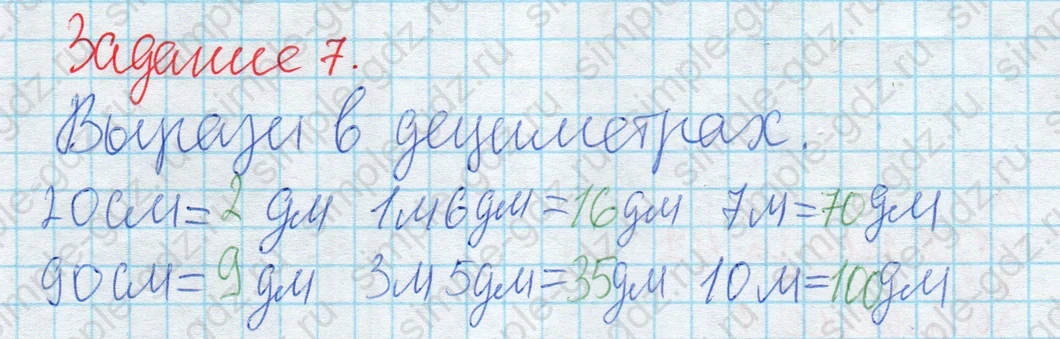 Задание 7.
Вырази в дециметрах.
20см=2 дм 1м6дм=16дм 7м=70дм
90см=9 дм 3м 5дм=35дм 10м=100дм